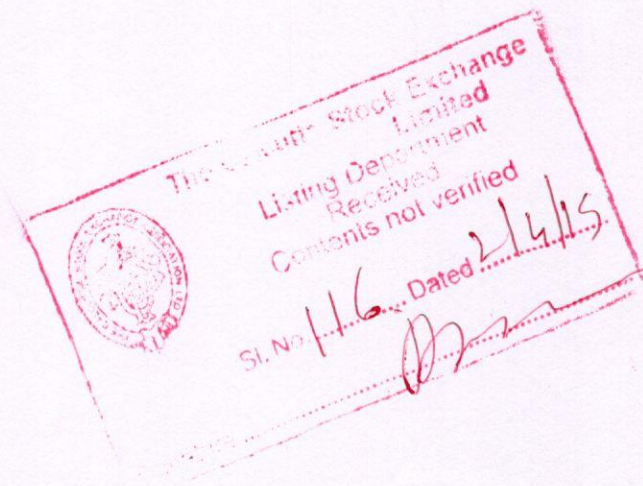 The Stock Exchange
Limited
Listing Department
Received
Contents not verified
Sl. No. 116 Dated 2/4/15